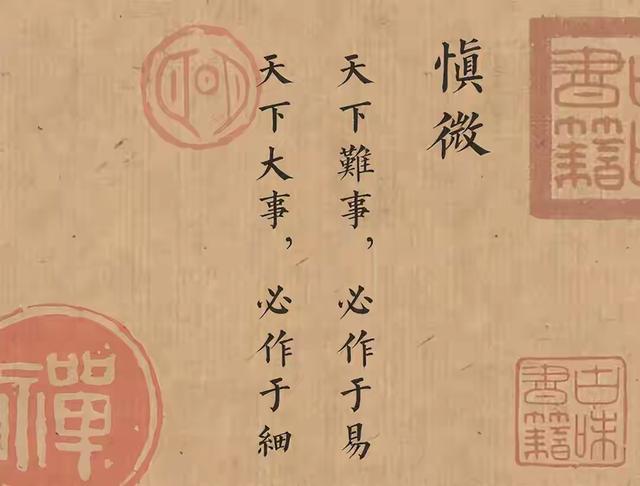 慎微
天下難事，必作于易
天下大事，必作于細
禪
古味
書籍